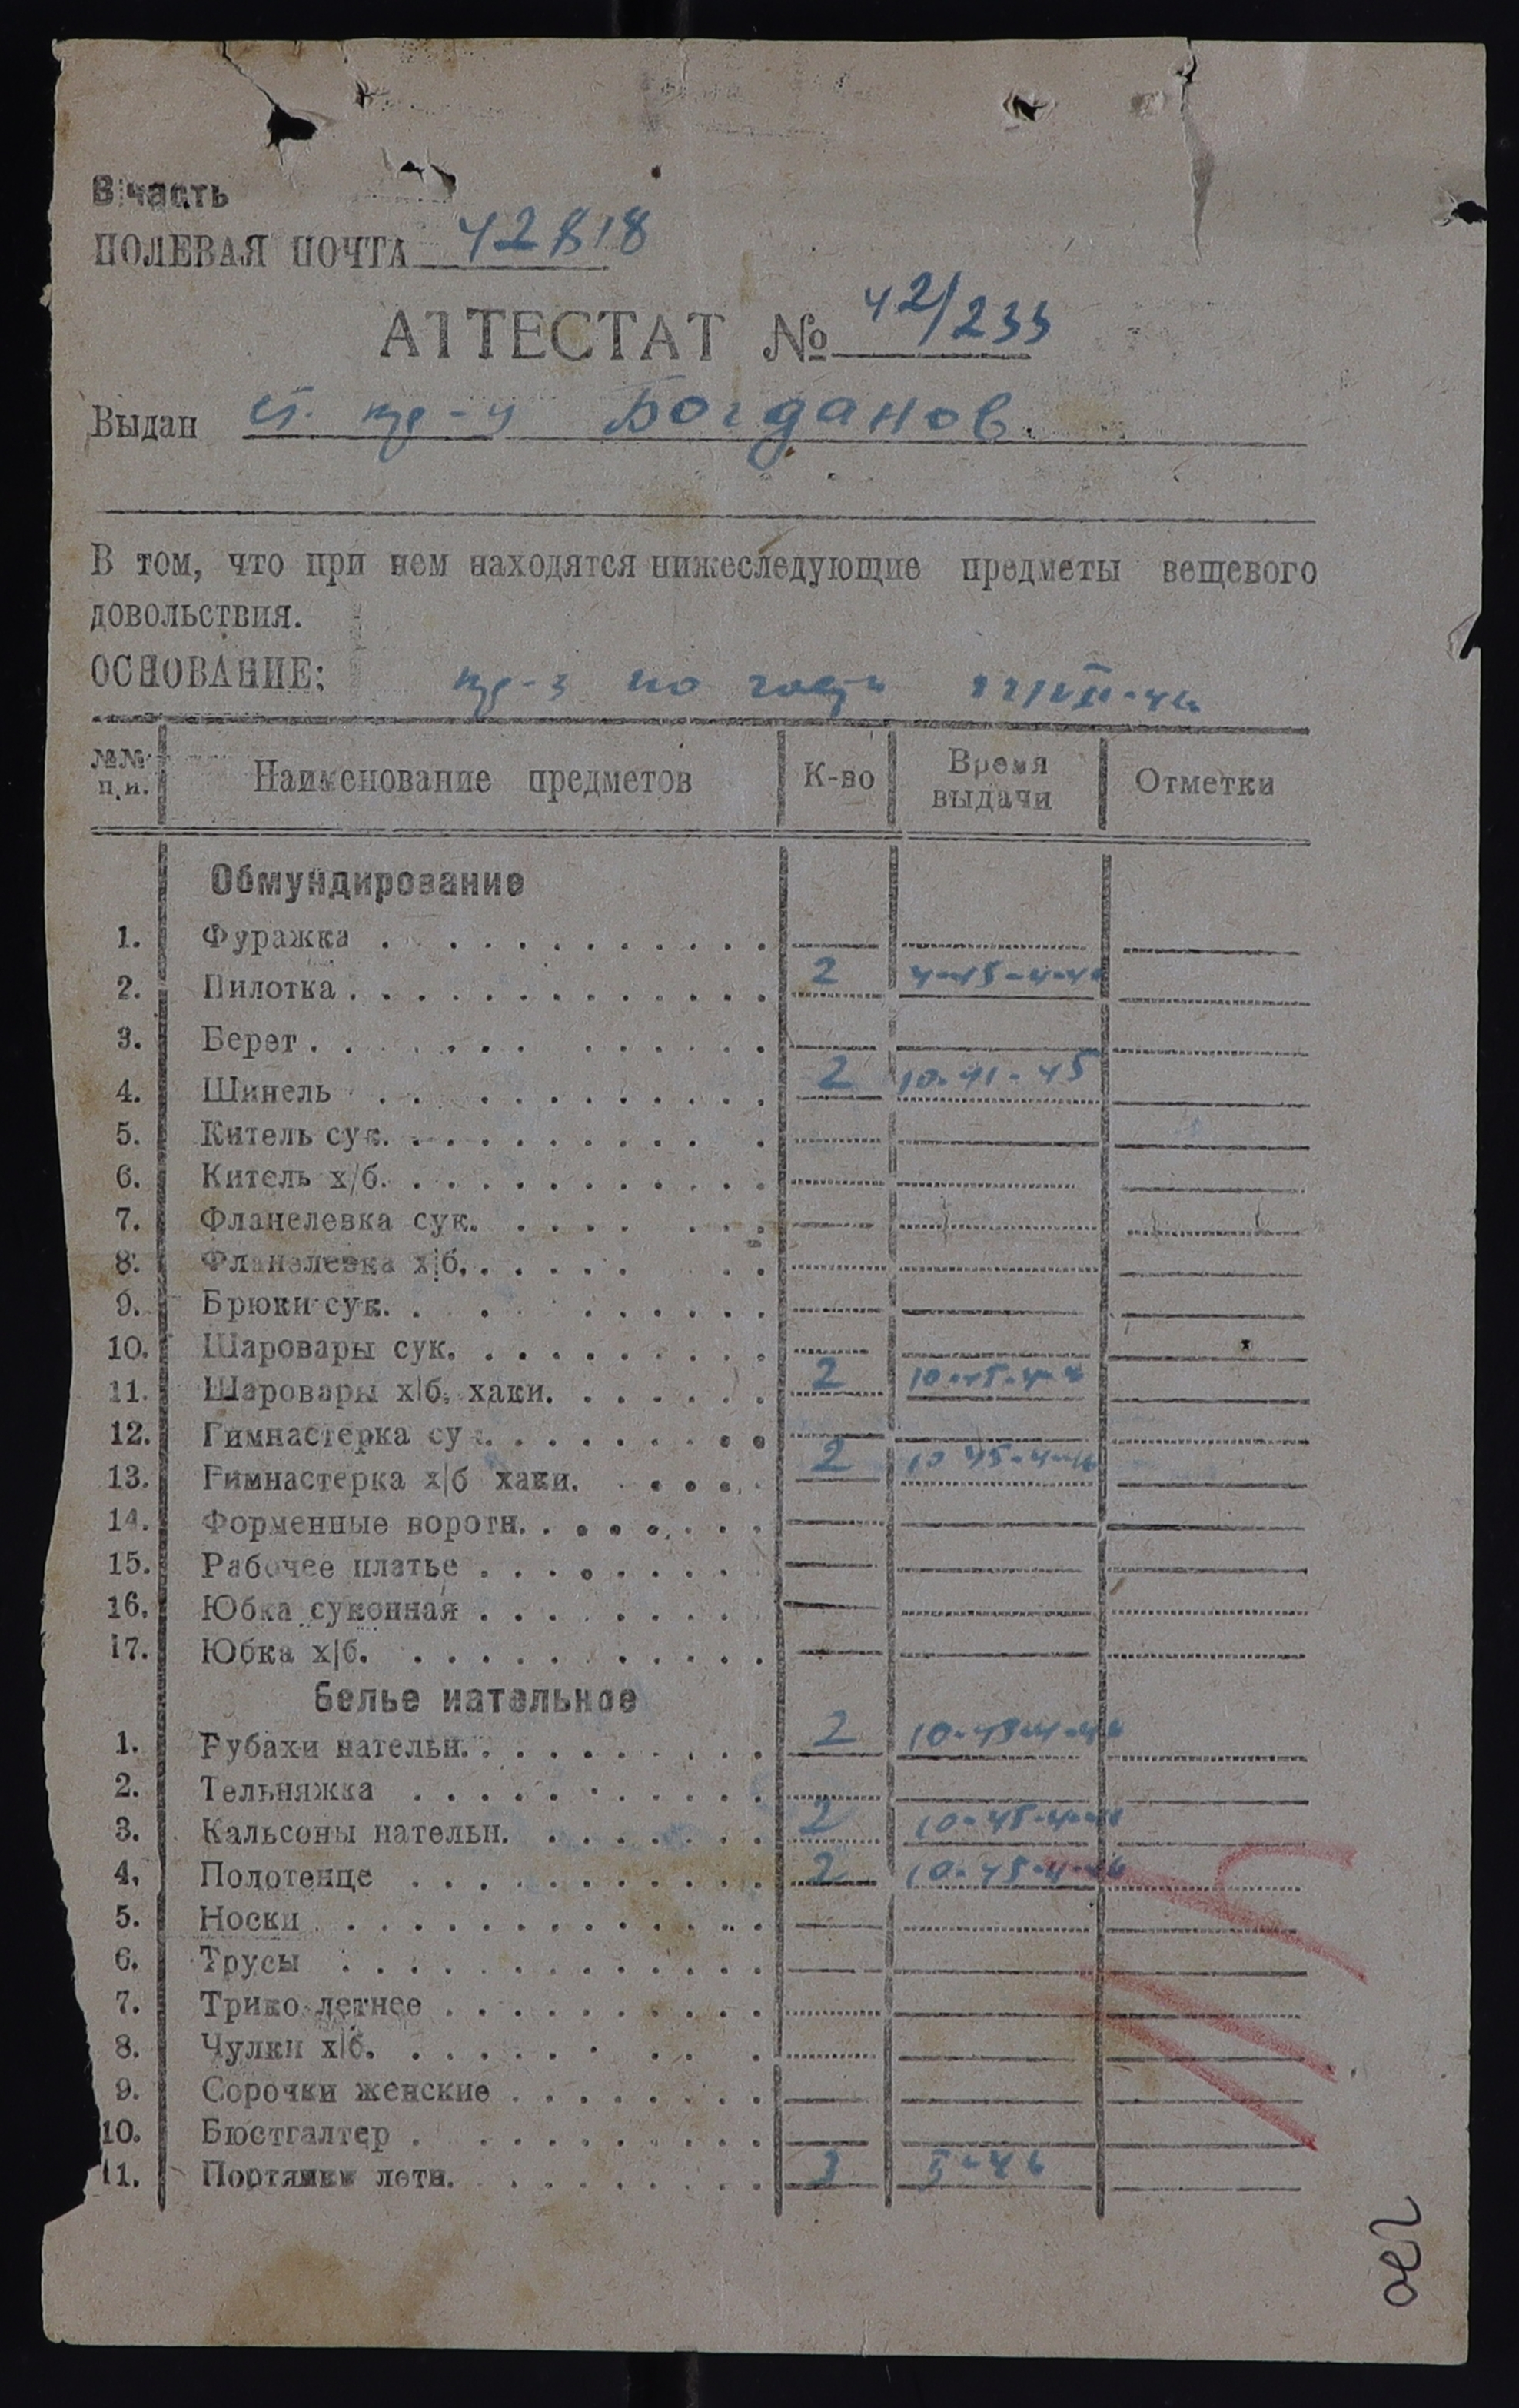 В часть
ПОЛЕВАЯ ПОЧТА 42818
АТТЕСТАТ № 42/233
Выдан ст. кр-ц Богданов.
В том, что при нем находятся нижеследующие предметы вещевого
довольствия.
ОСНОВАНИЕ: пр-з по части
№№ п.п. Наименование предметов К-во Время выдачи Отметки
Обмундирование
1. Фуражка
2. Пилотка 2 4-45-4-46
3. Берет
4. Шинель 2 10-41-45
5. Китель сук.
6. Китель х/б.
7. Фланелевка сук.
8. Фланелевка х|б.
9. Брюки сук.
10. Шаровары сук.
11. Шаровары х|б. хаки. 2 10-45-4-46
12. Гимнастерка сук.
13. Гимнастерка х|б хаки. 2 10 45-4-46
14. Форменные воротн.
15. Рабочее платье
16. Юбка суконная
17. Юбка х|б.
Белье нательное
1. Рубахи нательн. 2 10-45-4-46
2. Тельняжка
3. Кальсоны нательн. 2 10-45-4-46
4. Полотенце 2 10-45-4-46
5. Носки
6. Трусы
7. Трико летнее
8. Чулки х|б.
9. Сорочки женские
10. Бюстгалтер
11. Портянки летн. 3 5-46